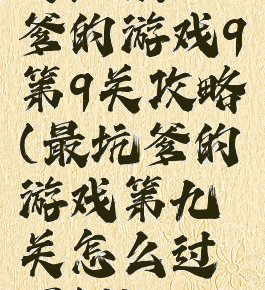 爹的游戏9
第9关攻略
(最坑爹的
游戏第九
关怎么过